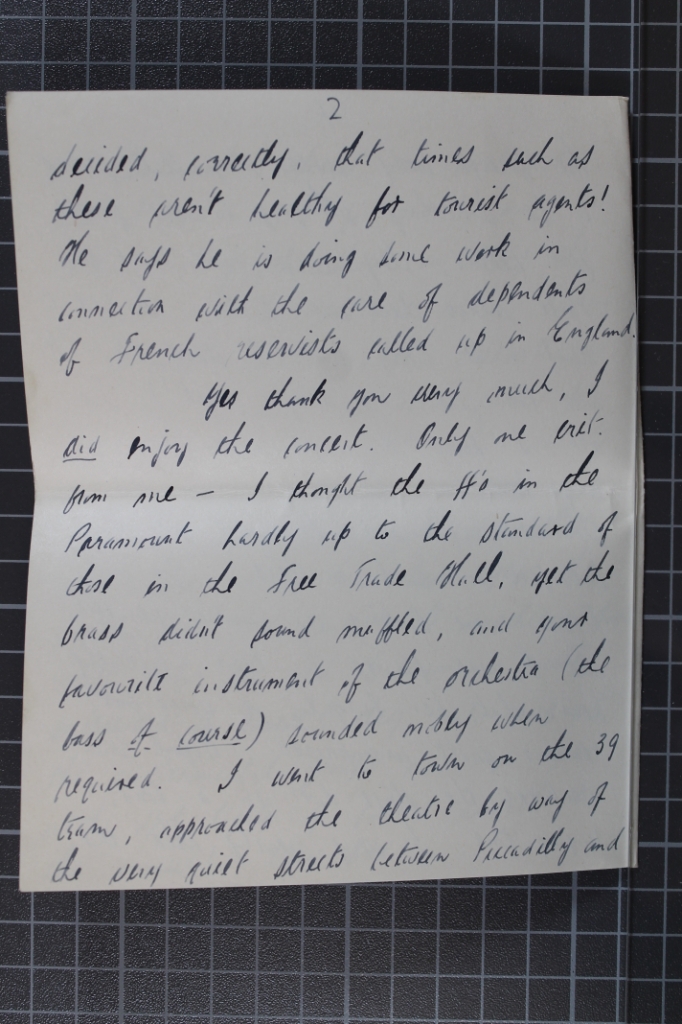 2
decided, correctly, that times such as
these aren't healthy for tourist agents!
He says he is doing some work in
connection with the care of dependents
of French reservists called up in England.
Yes thank you very much, I
did enjoy the concert. Only one crit.
from me – I thought the ff's in the
Paramount hardly up to the standard of
those in the Free Trade Hall, yet the
brass didn't sound muffled, and your
favourite instrument of the orchestra (the
bass of course) sounded nobly when
required. I went to town on the 39
tram, approached the theatre by way of
the very quiet streets between Piccadilly and